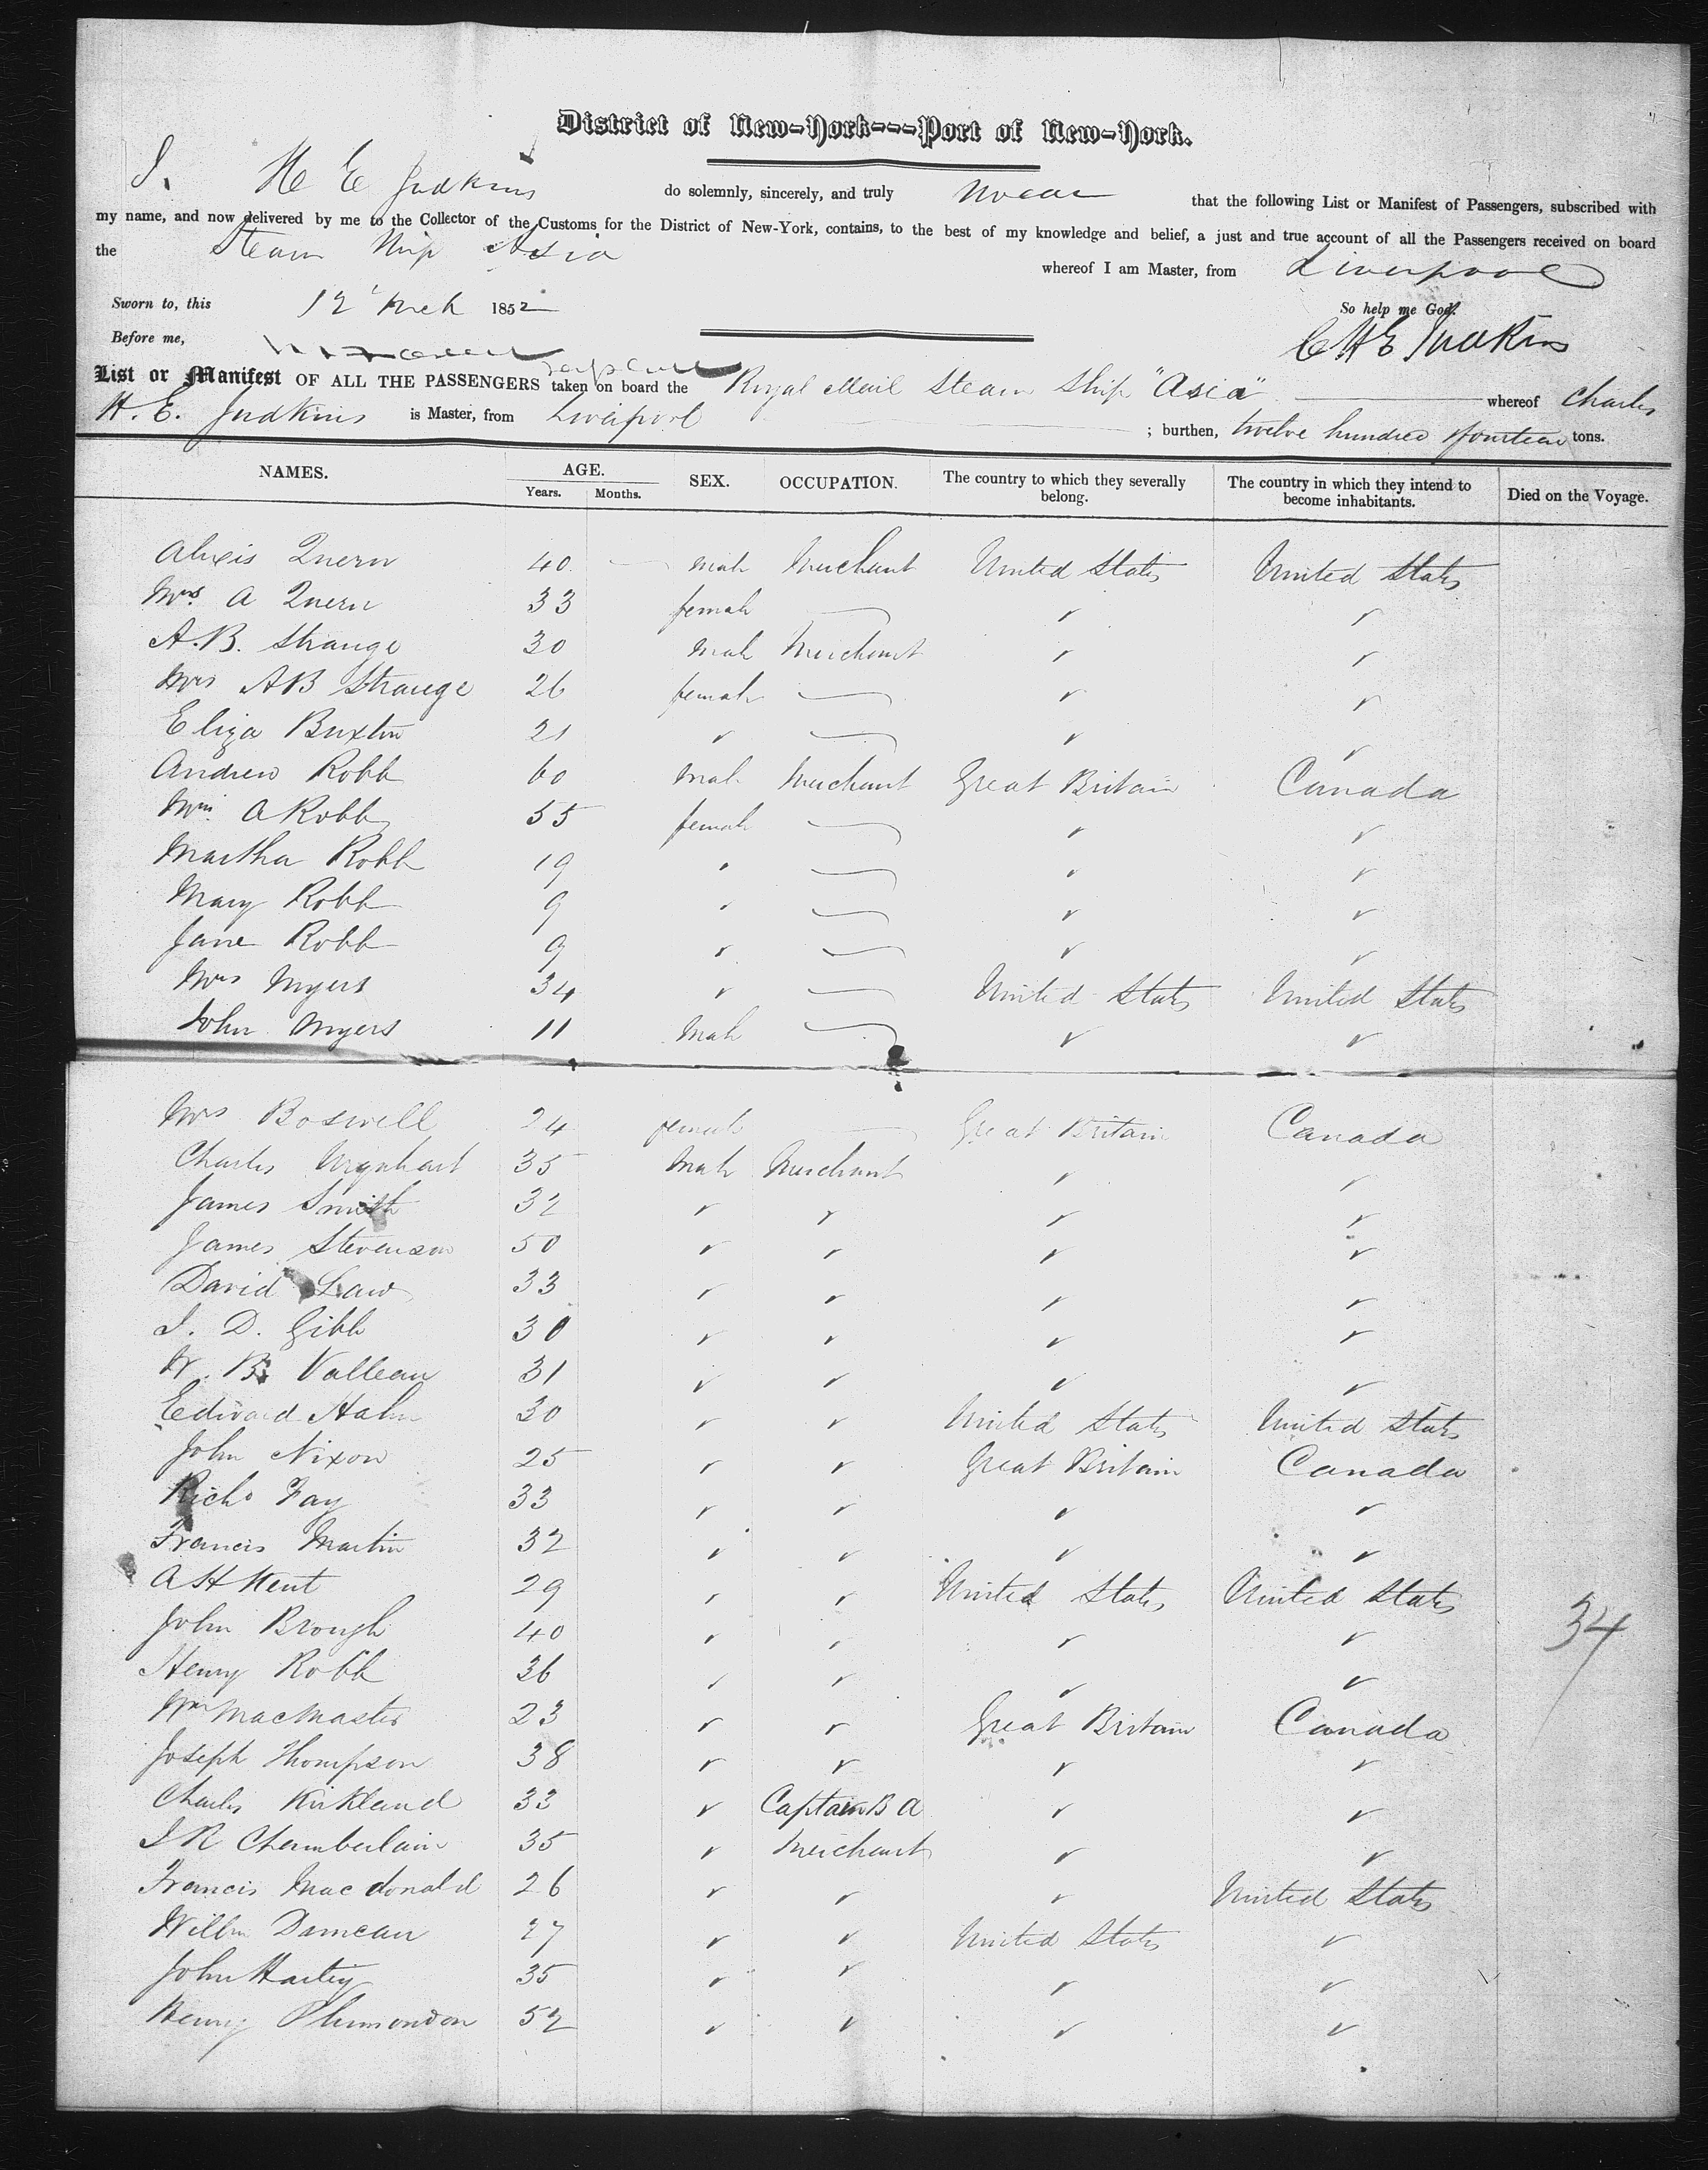 District of New-York---Port of New-York.
I, H E Judkins do solemnly, sincerely, and truly swear that the following List or Manifest of Passengers, subscribed with
my name, and now delivered by me to the Collector of the Customs for the District of New-York, contains, to the best of my knowledge and belief, a just and true account of all the Passengers received on board
the Steam Ship Asia whereof I am Master, from Liverpool
Sworn to, this 12 Mch 1852 So help me God.
Before me, C H E Judkins
List or Manifest OF ALL THE PASSENGERS taken on board the Royal Mail Steam Ship "Asia" whereof Charles
H. E. Judkins is Master, from Liverpool ; burthen, twelve hundred fourteen tons.
NAMES. AGE. Years. Months. SEX. OCCUPATION. The country to which they severally belong. The country in which they intend to become inhabitants. Died on the Voyage.
Alexis 40 male Merchant United States United States
Mrs. A 33 female ✓ ✓
A.B. Strange 30 male Merchant ✓ ✓
Mrs AB Strange 26 female ✓ ✓
Eliza Buxton 21 ✓ ✓ ✓
Andrew Robb 60 male Merchant Great Britain Canada
Mrs. A Robb 55 female ✓ ✓
Martha Robb 19 ✓ ✓ ✓
Mary Robb 9 ✓ ✓ ✓
Jane Robb 9 ✓ ✓ ✓
Mrs Myers 34 ✓ United States United States
John Myers 11 Male ✓ ✓
Mrs Boswell 24 female Great Britain Canada
Charles Urquhart 35 Male Merchant ✓ ✓
James Smith 32 ✓ ✓ ✓ ✓
James Stevenson 50 ✓ ✓ ✓ ✓
David Law 33 ✓ ✓ ✓ ✓
J. D. Gibb 30 ✓ ✓ ✓ ✓
W. B. Valleau 31 ✓ ✓ ✓ ✓
Edward Hahn 30 ✓ ✓ United States United States
John Nixon 25 ✓ ✓ Great Britain Canada
Richd Fay 33 ✓ ✓ ✓ ✓
Francis Martin 32 ✓ ✓ ✓ ✓
A H Kent 29 ✓ ✓ United States United States
John Brough 40 ✓ ✓ ✓ ✓
34
Henry Robb 36 ✓ ✓ ✓ ✓
Wm MacMaster 23 ✓ ✓ Great Britain Canada
Joseph Thompson 38 ✓ ✓ ✓ ✓
Charles Kirkland 33 ✓ Captain B A ✓ ✓
J R Chamberlain 35 ✓ Merchant ✓ ✓
Francis Macdonald 26 ✓ ✓ ✓ United States
Willm Duncan 27 ✓ ✓ United States ✓
John Hartig 35 ✓ ✓ ✓ ✓
Henry Plumondon 52 ✓ ✓ ✓ ✓